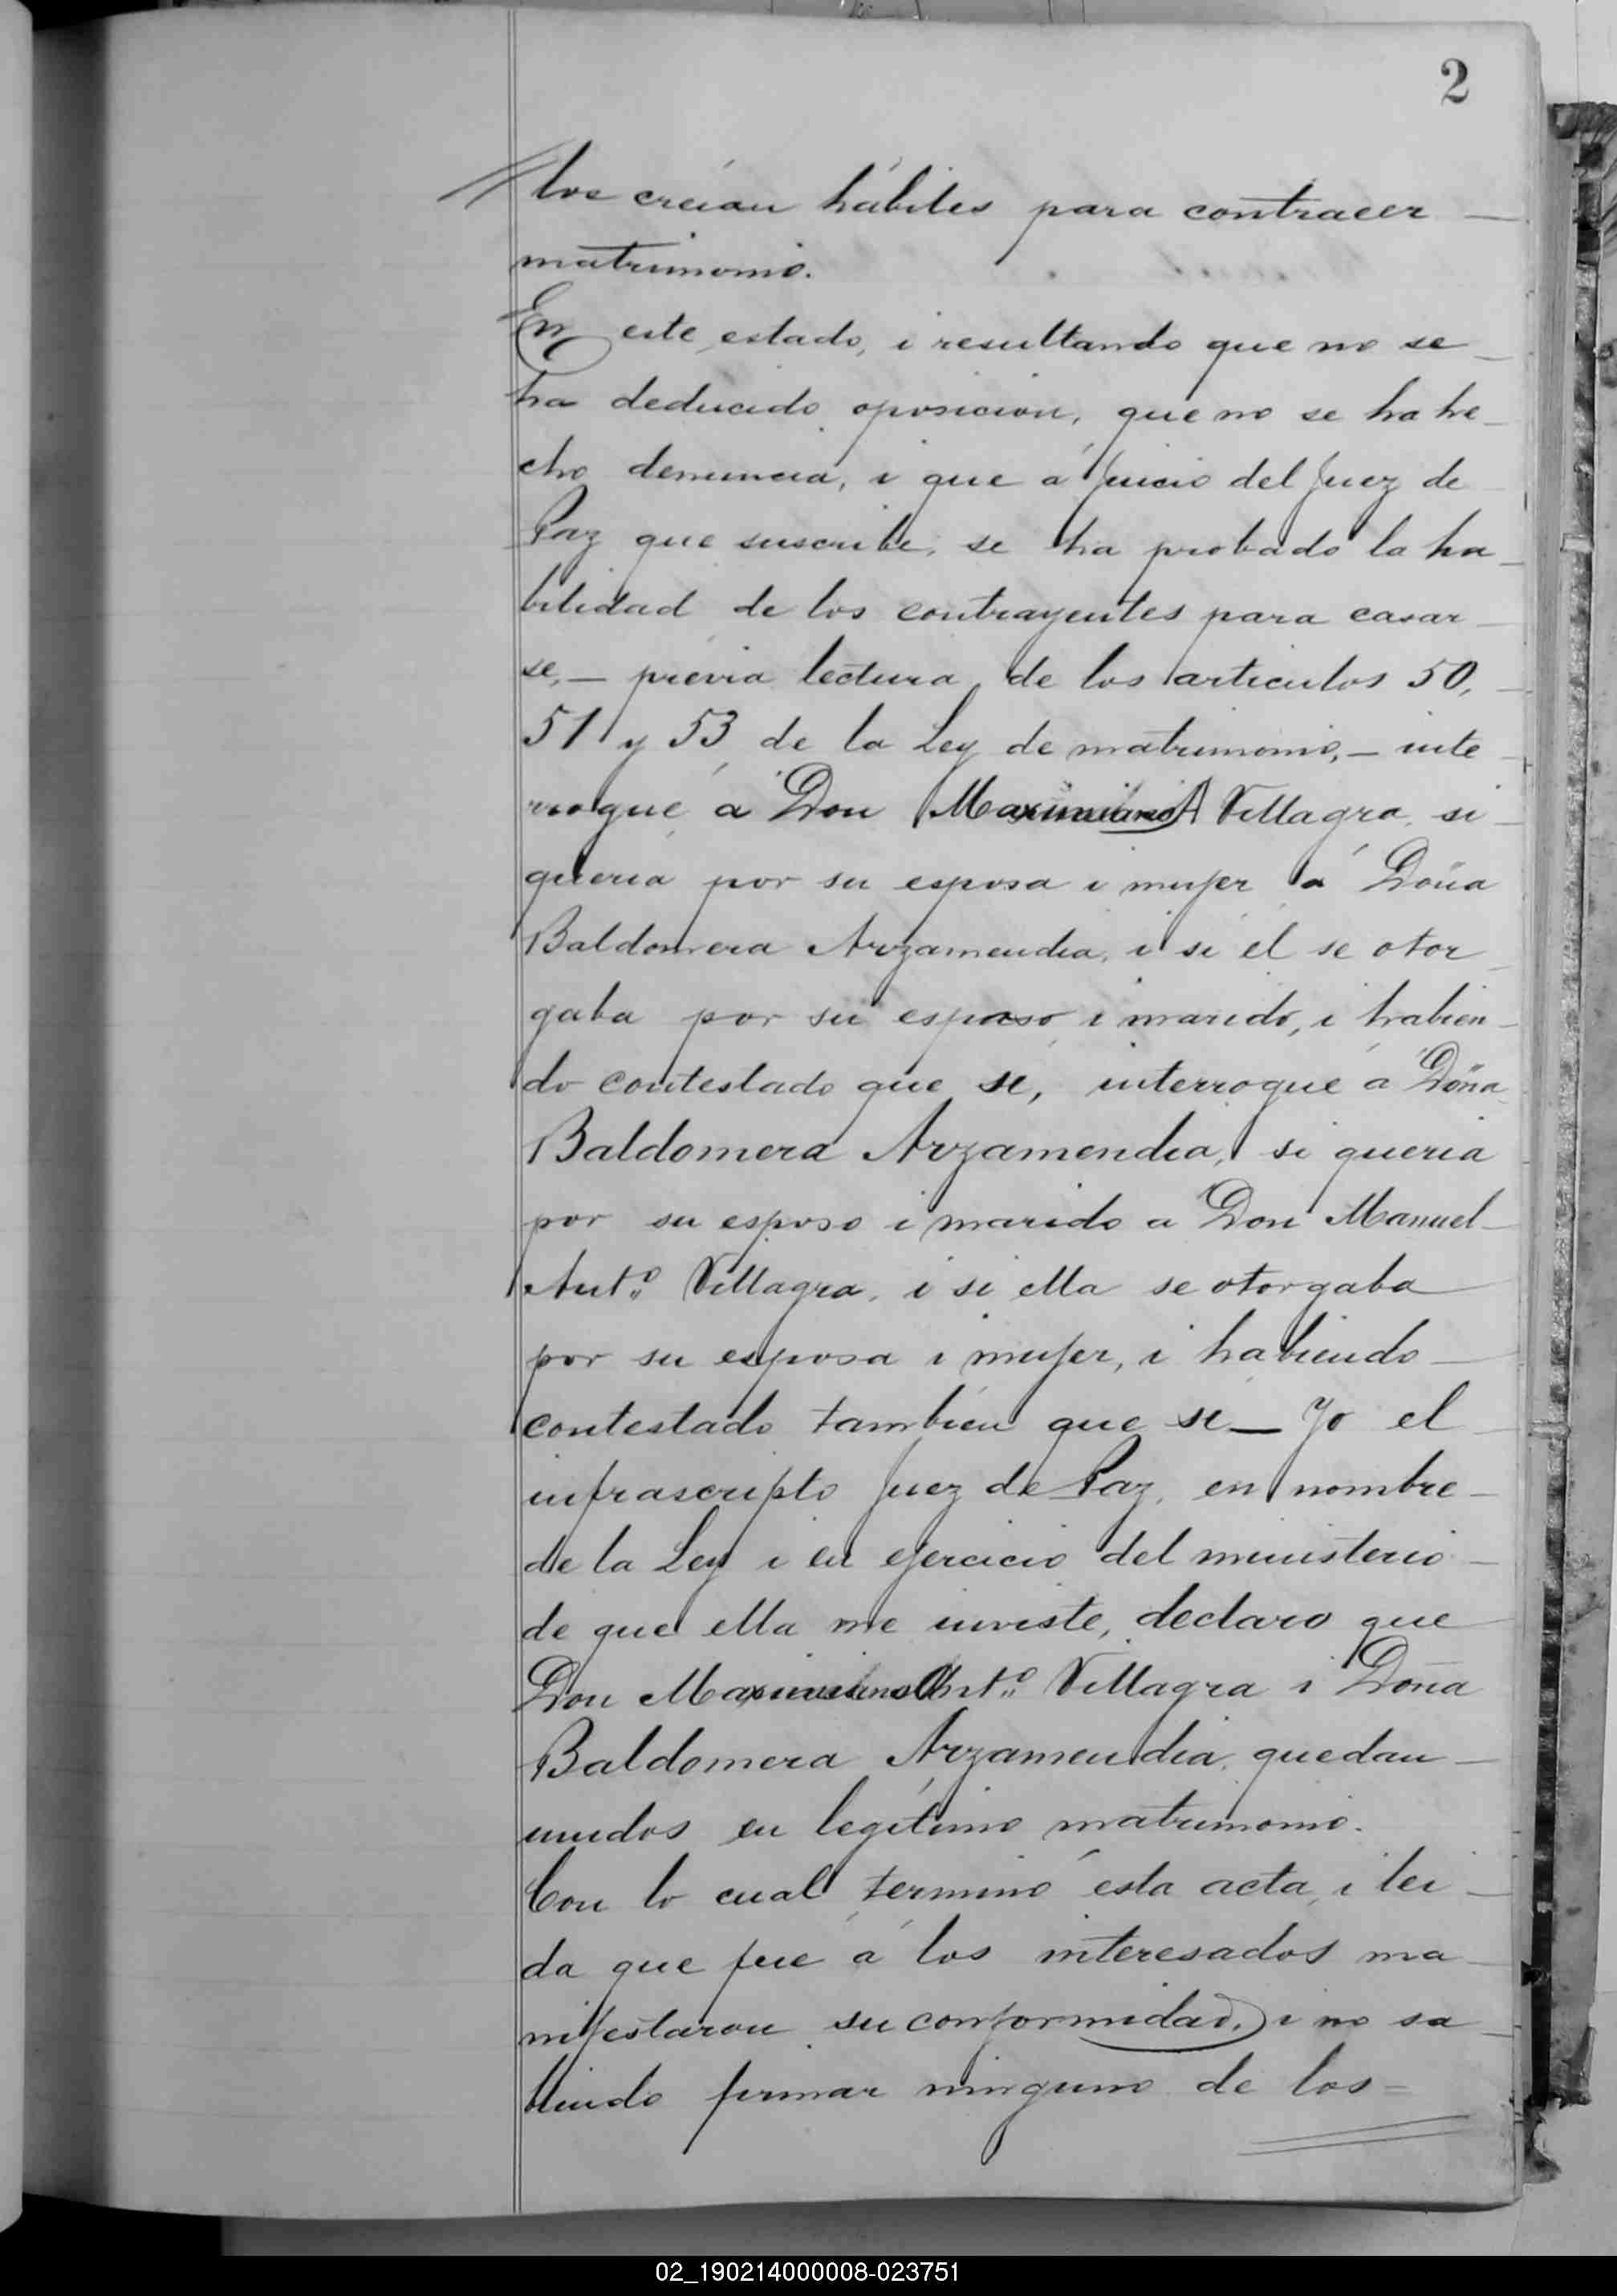 2
los creían hábiles para contraeer
matrimonio.
En este estado, i resultando que no se
ha deducido oposicion, que no se ha he-
cho denuncia, i que á juicio del Juez de
Paz que suscribe, se ha probado la ha-
bilidad de los contrayentes para casar
se,— prévia lectura de los articulos 50,
51 y 53 de la Ley de matrimonio,— inte
rrogué á Don Maximiano A Villagra, si
quería por su esposa i mujer á Doña
Baldomera Arzamendia, i si él se otor
gaba por su esposo i marido, i habien-
do contestado que sí, interrogué á Doña
Baldomera Arzamendia, si queria
por su esposo i marido a Don Manuel
Ant.º Villagra, i si ella se otorgaba
por su esposa i mujer, i habiendo
contestado también que sí — Yo el
infrascripto Juez de Paz, en nombre
de la Ley i en ejercicio del ministerio
de que ella me inviste, declaro que
Don Maximiano Ant.º Villagra i Doña
Baldomera Arzamendia, quedan
unidos en legítimo matrimonio.
Con lo cual terminó esta acta, i lei
da que fué á los interesados ma
nifestaron su conformidad, i no sa
biendo firmar ninguno de los=
02_190214000008-023751